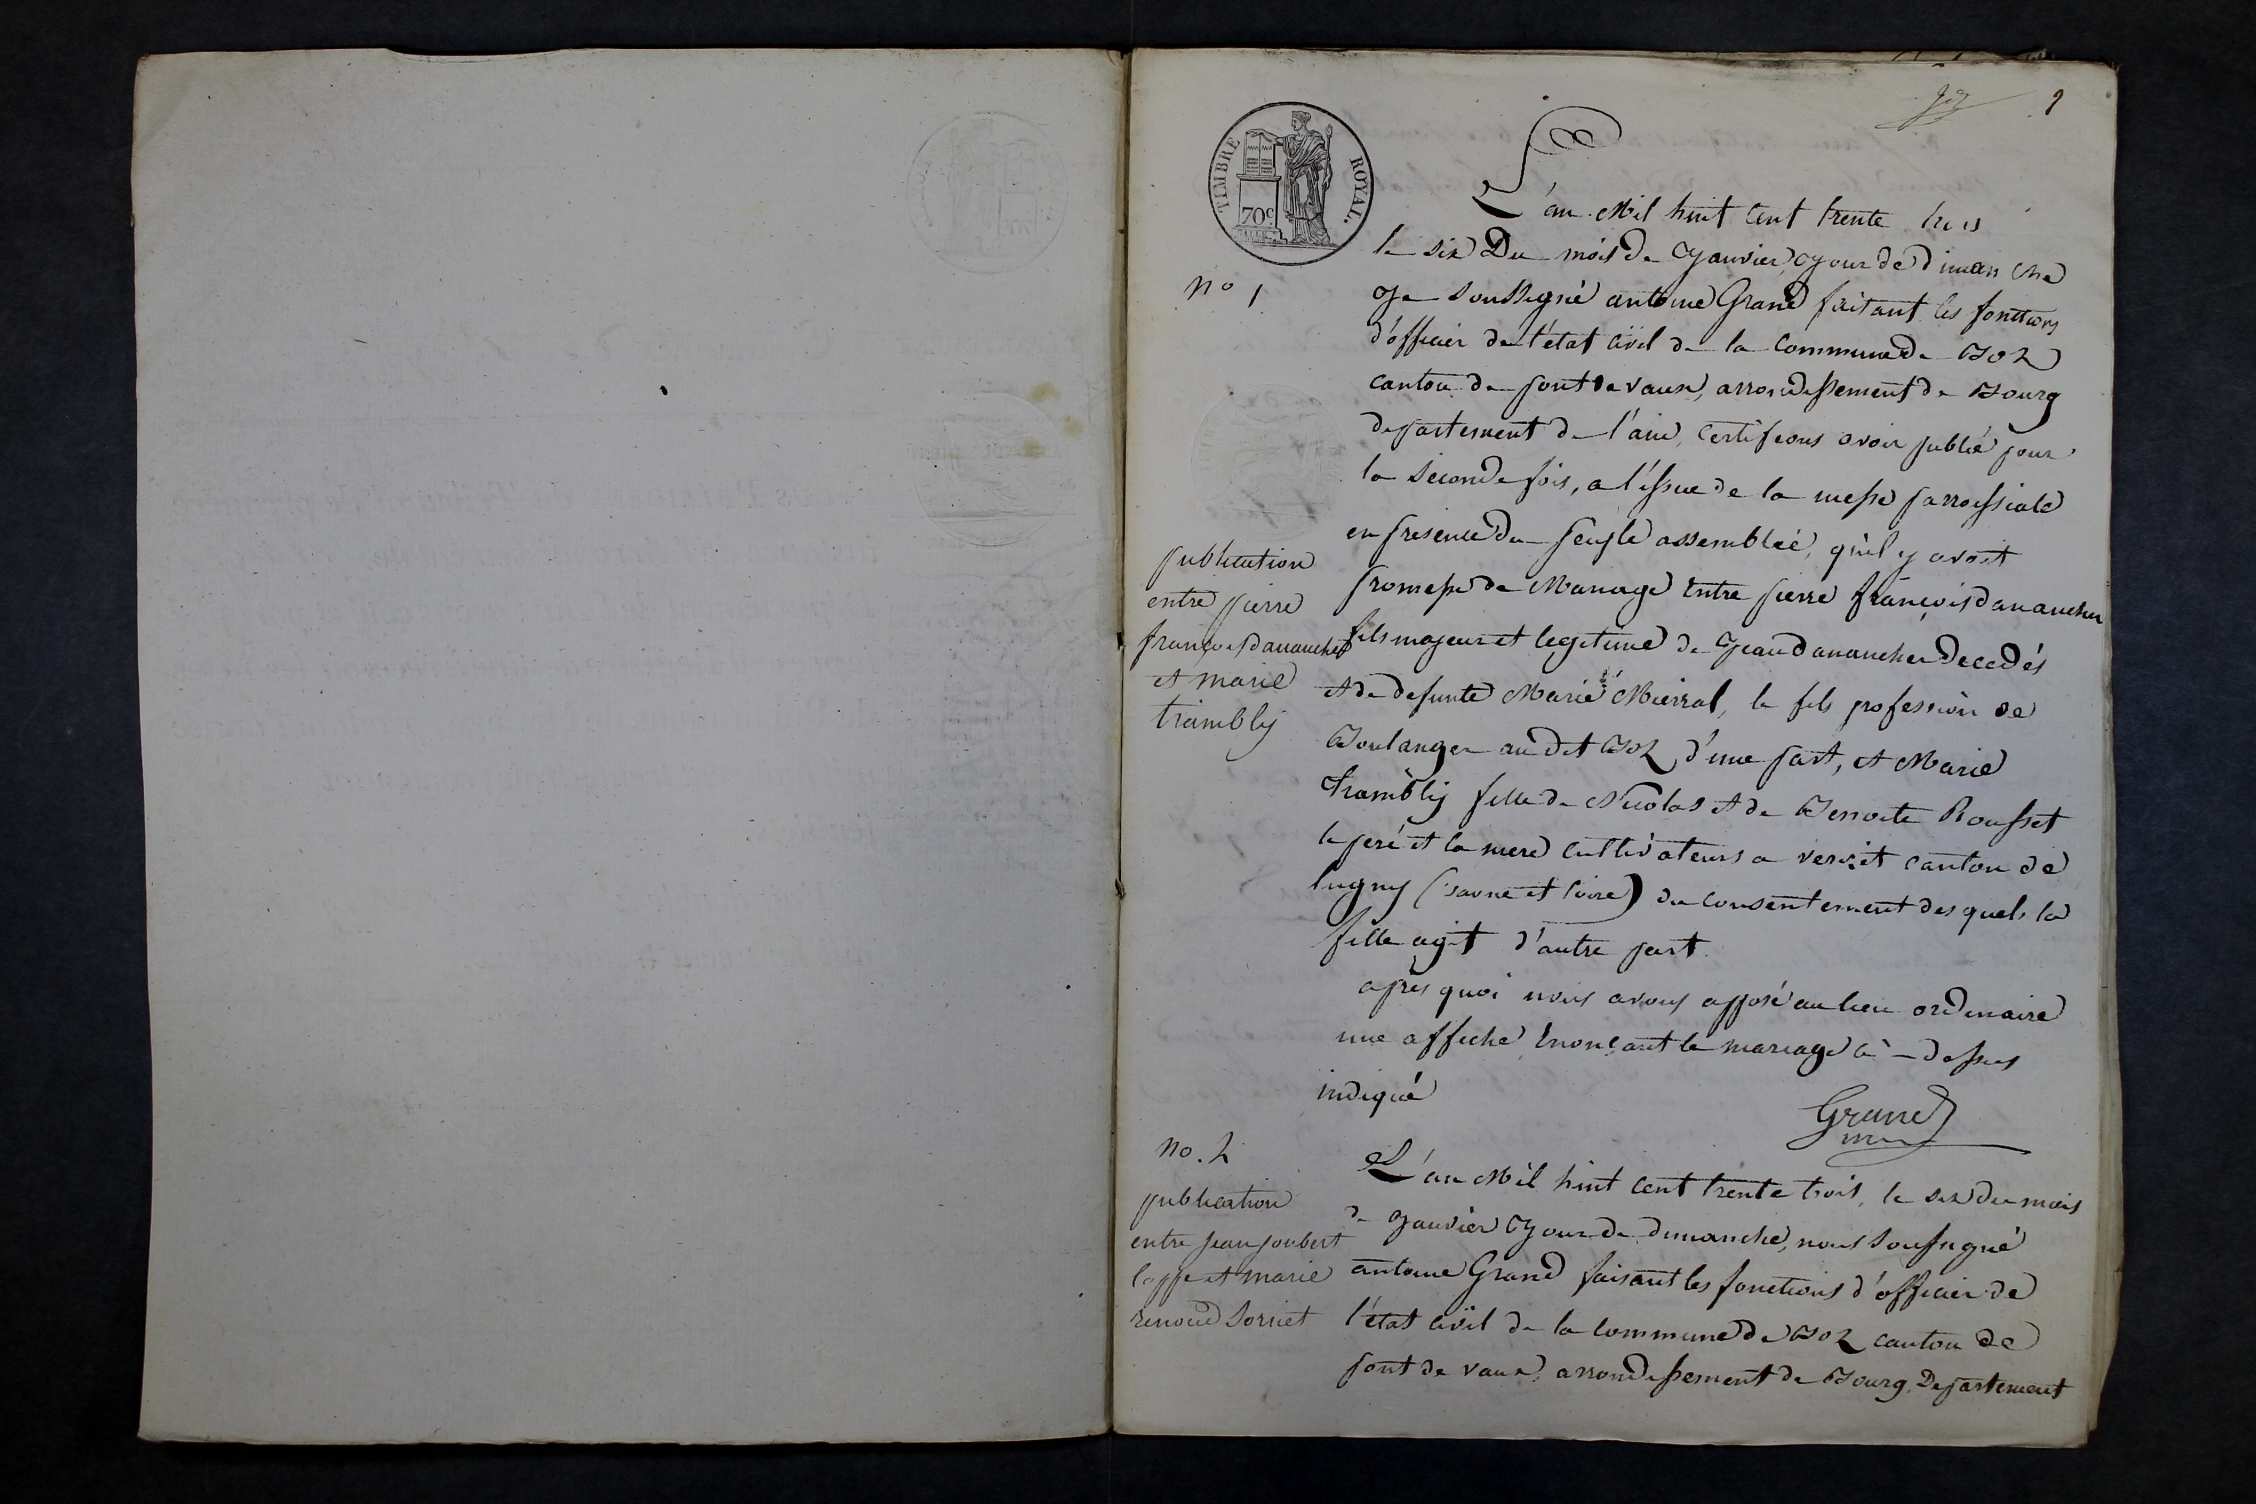 1
TIMBRE ROYAL.
70c
L'an Mil huit cent trente trois
le six Du mois de Janvier Jour de dimanche
no 1
Je soussigné antoine Grand faitant les fonctions
d'officier de l'état civil de la Commune de Boz
canton de pont de vaux, arrondissement de Bourg
departement de l'ain, certifions avoir publié pour
la seconde fois, a l'issue de la messe parroissiale
en presence du peuple assemblée, qu'il y avoit
promesse de Mariage entre pierre françois danancher
fils majeur et legitime de Jean danancher decedés
et de defunte Marie le fils profession de
Boulanger au dit Boz d'une part, et Marie
tramblÿ fille de Nicolas et de Benoite Rousset
le peré et la mere cultivateurs a verizet canton de
lugny (saone et loire) du consentement des quels la
fille agit d'autre part
après quoi nous avons apposé au lieu ordinaire
une affiche Enonçant le mariage ci-dessus
indiqué
Grand
publication
entre pierre
françois danancher
et marie
tramblÿ
no. 2
publication
entre jean joubert
loppe et marie
renoud sorniet
L'an Mil huit cent trente trois, le six du mois
de Janvier Jour de dimanche, nous soussigné
antoine Grand faisant les fonctions d'officier de
l'état civil de la commune de Boz canton de
pont de vaux, arrondissement de Bourg, Departement